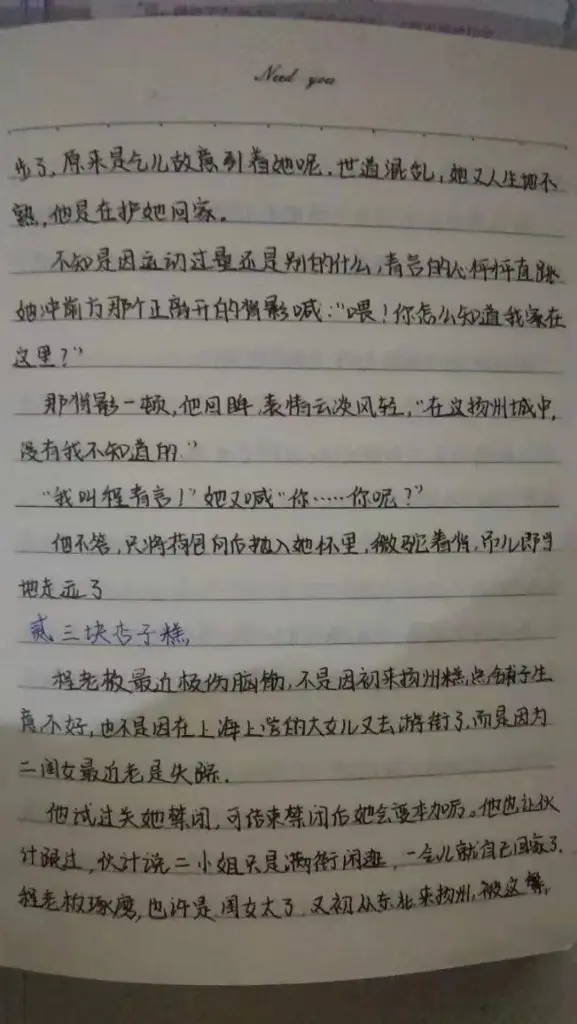 Need you
步了，原来是乞儿故意引着她呢，世道混乱，她又人生地不
熟，他是在护她回家。
不知是因运动过量还是别的什么，青言的心怦怦直跳
她冲前方那个正离开的背影喊："喂！你怎么知道我家在
这里？"
那背影一顿，他回眸，表情云淡风轻，"在这扬州城中，
没有我不知道的"
"我叫程青言！"她又喊"你……你呢？"
他不答，只将荷包向后抛入她怀里，微驼着背，吊儿郎当
地走远了
贰 三块杏子糕，
程老板最近极伤脑筋，不是因初来扬州糕点铺子生
意不好，也不是因在上海上学的大女儿又去游街了，而是因为
二闺女最近老是失踪．
他试过关她禁闭，可结束禁闭后她会变本加厉。他也让伙
计跟过，伙计说二小姐只是满街闲逛，一会儿就自己回家了．
程老板琢磨，也许是闺女大了，又初从东北来扬州，被这繁，